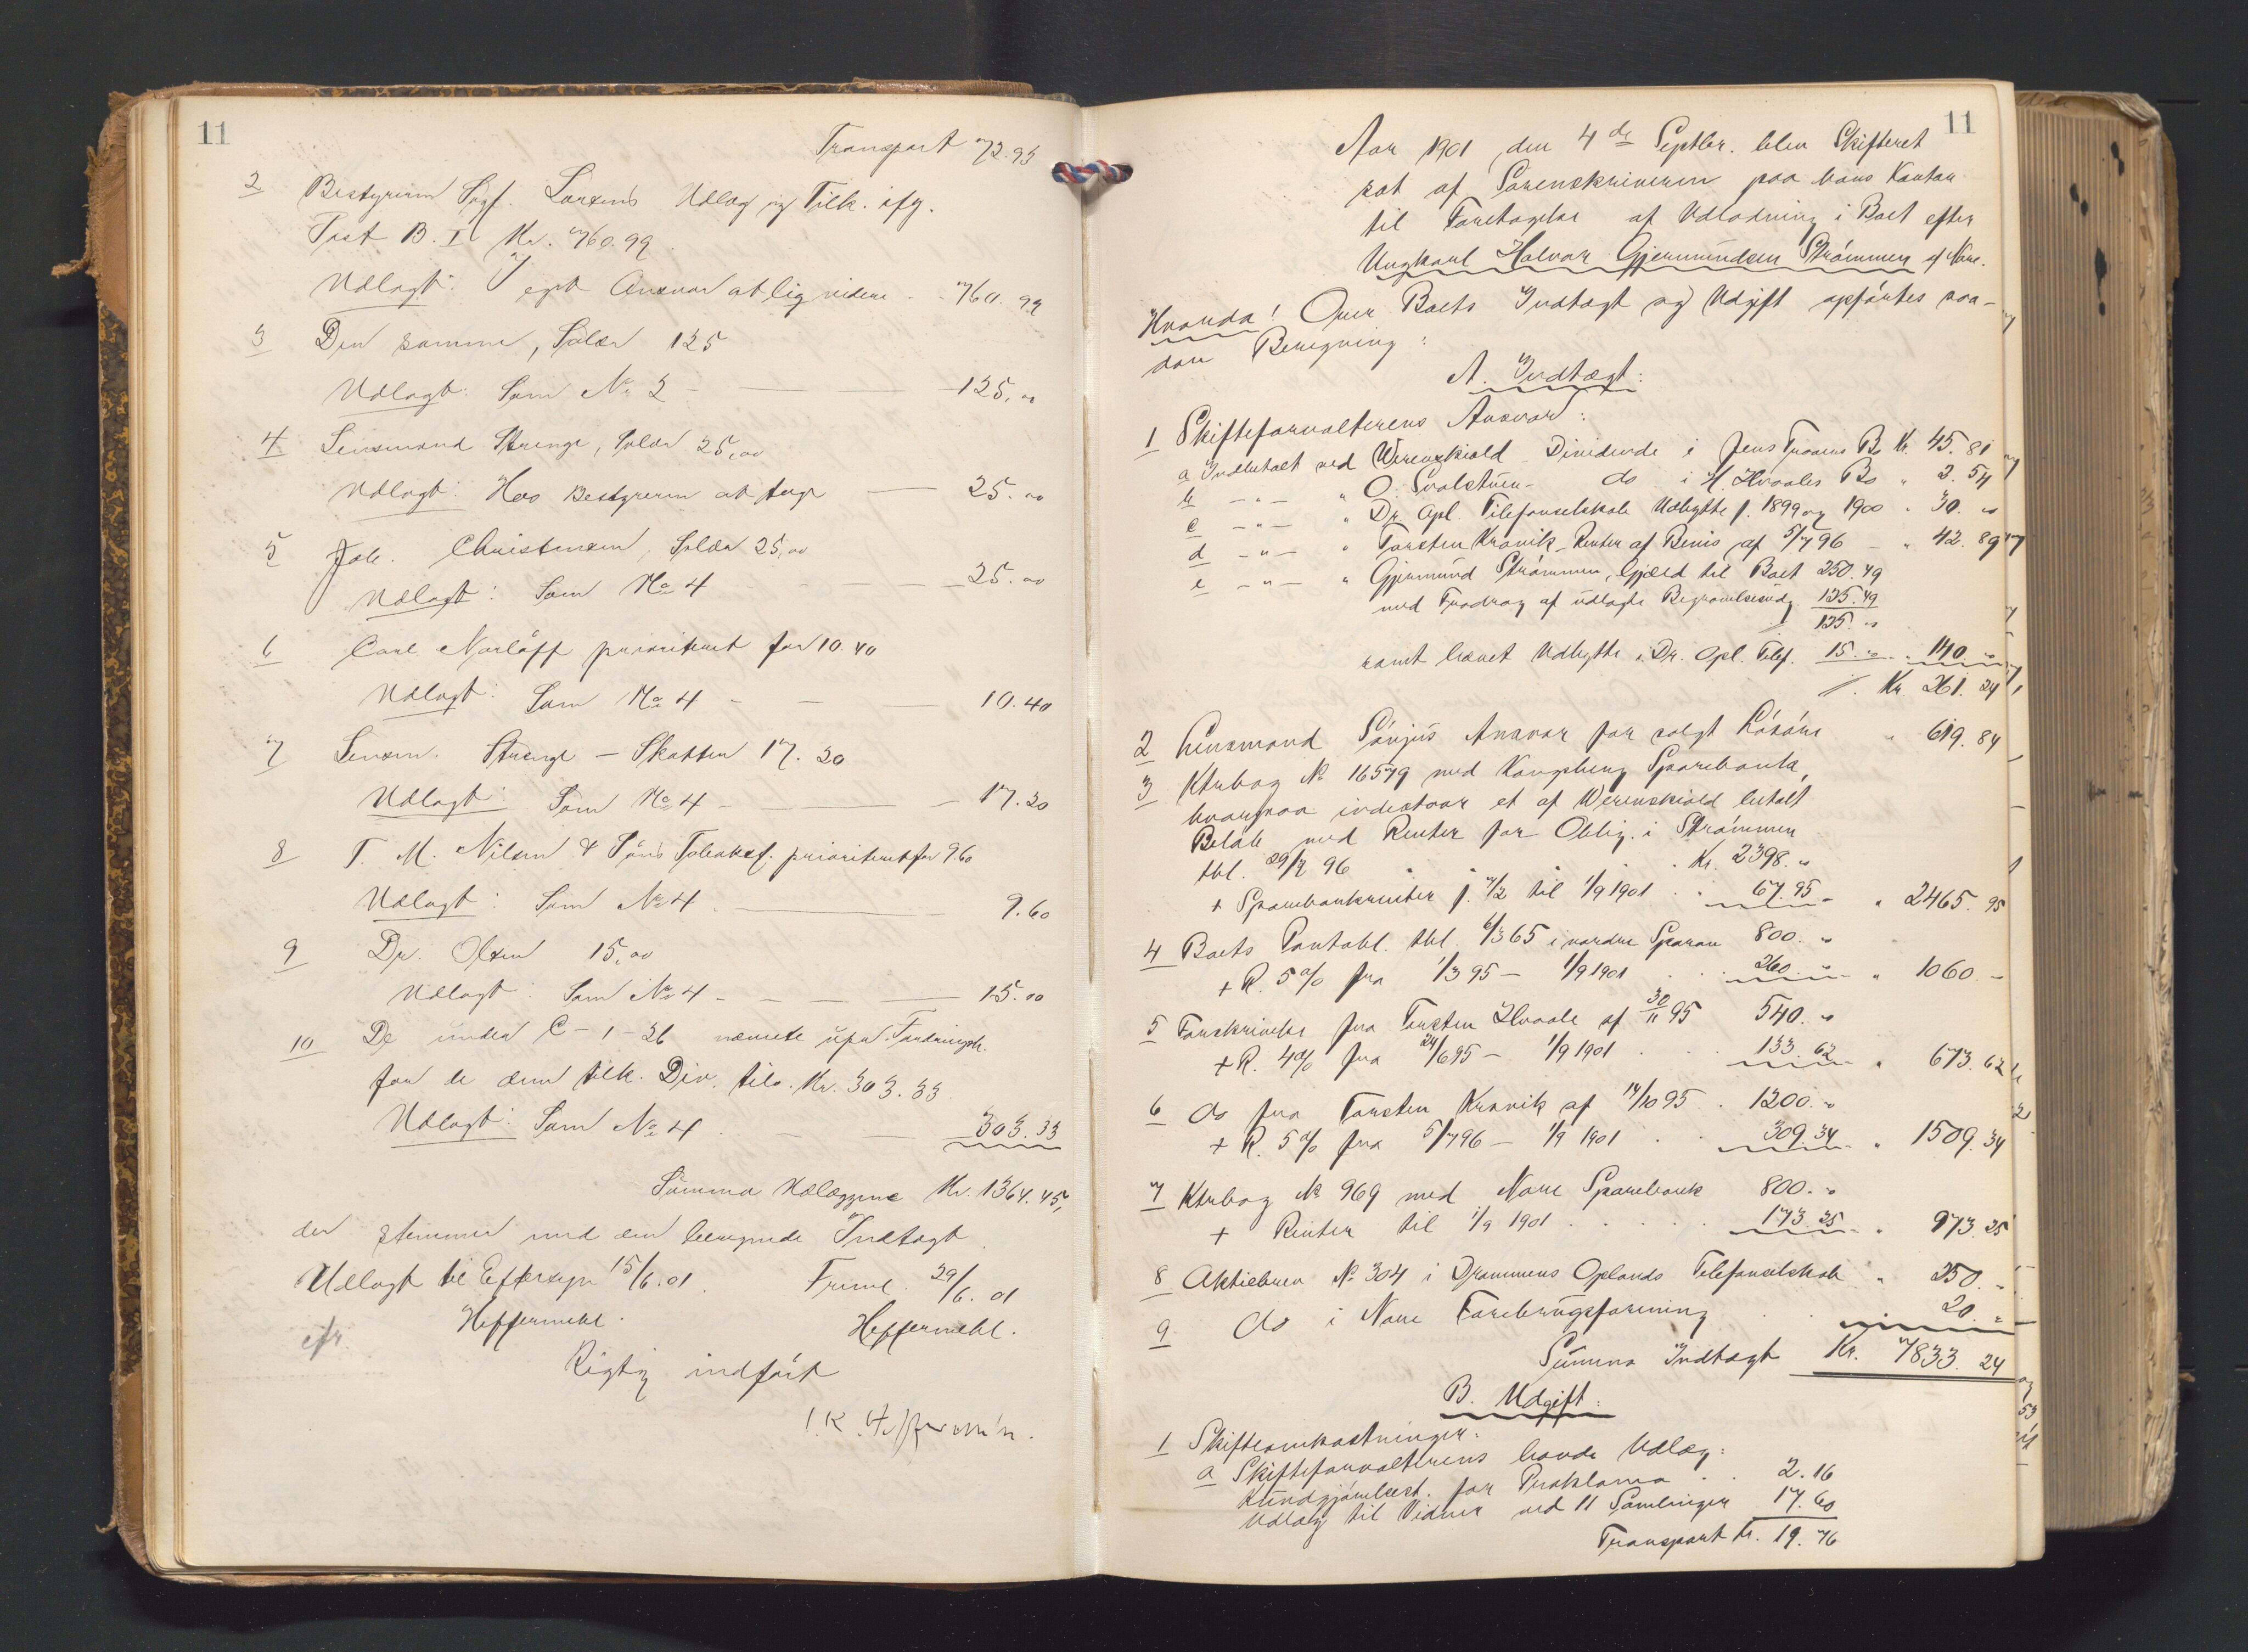 11
Transport 72.95
2 Bestyreren Sagf. Larsens Udlæg og Tilk. ifg.
Post B. I Kr. 760.99
Udlagt: I eget Ansvar at ligvidere - - 760.99
3 Den samme, Salær 125
Udlagt: Som No 2 - 125.00
4 Lensmand Strenge, Salær 25,00
Udlagt: Hos Bestyreren at tage 25.00
5 Joh. Christensen, Salær 25,00
Udlagt: Som No 4 25.00
6 Carl Narløff prioriteret for 10.40
Udlagt: Som No 4 - 10.40
7 Lensm. Strenge - Skatten 17.20
Udlagt: Som No 4 - 17.20
8 T. M. Nilsen & Søns Tobaksf. prioriteret for 9.60
Udlagt: Som No 4 9.60
9 Dr. Olsen 15,00
Udlagt: Som No 4 - 15.00
10 De under C-1-26 nævnte upr. Fordringsh.
for de dem tilk. Div. tils. Kr. 303.33
Udlagt: Som No 4 303.33
Summa Udlæggene Kr. 1364.45,
der stemmer med den beregnede Indtægt
Udlagt til Eftersyn 15/6.01. Freml. 29/6.01
Heffermehl. Heffermehl.
cfr.
Rigtig indført
11
Aar 1901 den 4de Septbr. blev Skifteret
sat af Sorenskriveren paa hans Kontor
til Foretagelse af Udlodning i Boet efter
Ungkarl Halvor Gjermundsen Strømmen af Nore.
Hvorda! Over Boets Indtægt og Udgift opførtes saa-
dan Beregning:
A. Indtægt:
1 Skifteforvalterens Ansvar:
a Indbetalt ved Werenskiold - Dividende i Jens Traaens Bo Kr. 45.81
b - " - " O. Svalstuen - do i H. Hvaales Bo " 2.54
c - " - " Dr. Opl. Telefonselskab Udbytte f. 1899 og 1900 " 30. "
d - " - " Torsten Kravik - Renter af Bevis af 5/7 96 - " 42.89
e - " - " Gjermund Strømmen, Gjæld til Boet 250.49
med Fradrag af udlagte Begravelsesudg. 125.49
125. "
samt hævet Udbytte i Dr. Opl. Telef. 15. " " 140. "
Kr. 261.24
2 Lensmand Sønjus Ansvar for solgt Løsøre " 619.84
3 Ktrbog No 16579 med Kongsberg Sparebank,
hvorpaa indestaar et af Werenskiold betalt
Beløb med Renter for Oblig. i Strømmen
tbl. 29/7 96 Kr. 2398. "
+ Sparebankrenter f. 7/2 til 1/9 1901 67.95 " 2465.95
4 Boets Pantobl. tbl. 6/3 65 i nordre Sporan 800. "
+ R. 5% fra 1/3 95 - 1/9 1901 260. " " 1060 -
5 Forskrivelse fra Torsten Hvaale af 30/11 95 540. "
+ R. 4% fra 24/6 95 - 1/9 1901 133.62 " 673.62
6 do fra Torsten Kravik af 14/10 95 1200. "
+ R. 5% fra 5/7 96 - 1/9 1901 309.34 " 1509.34
7 Ktrbog No 969 med Nore Sparebank 800. "
+ Renter til 1/9 1901 173.25 " 973.25
8 Aktiebrev No 304 i Drammens Oplands Telefonselskab " 250. "
9 do i Nore Forebrugsforening 20. "
Summa Indtægt Kr. 7833.24
B. Udgift:
1 Skifteomkostninger:
a Skifteforvalterens havde Udlæg:
Kundgjørelsest. for Proklama 2.16
Udlæg til Vidner ved 11 Samlinger 17.60
Transport Kr. 19.76